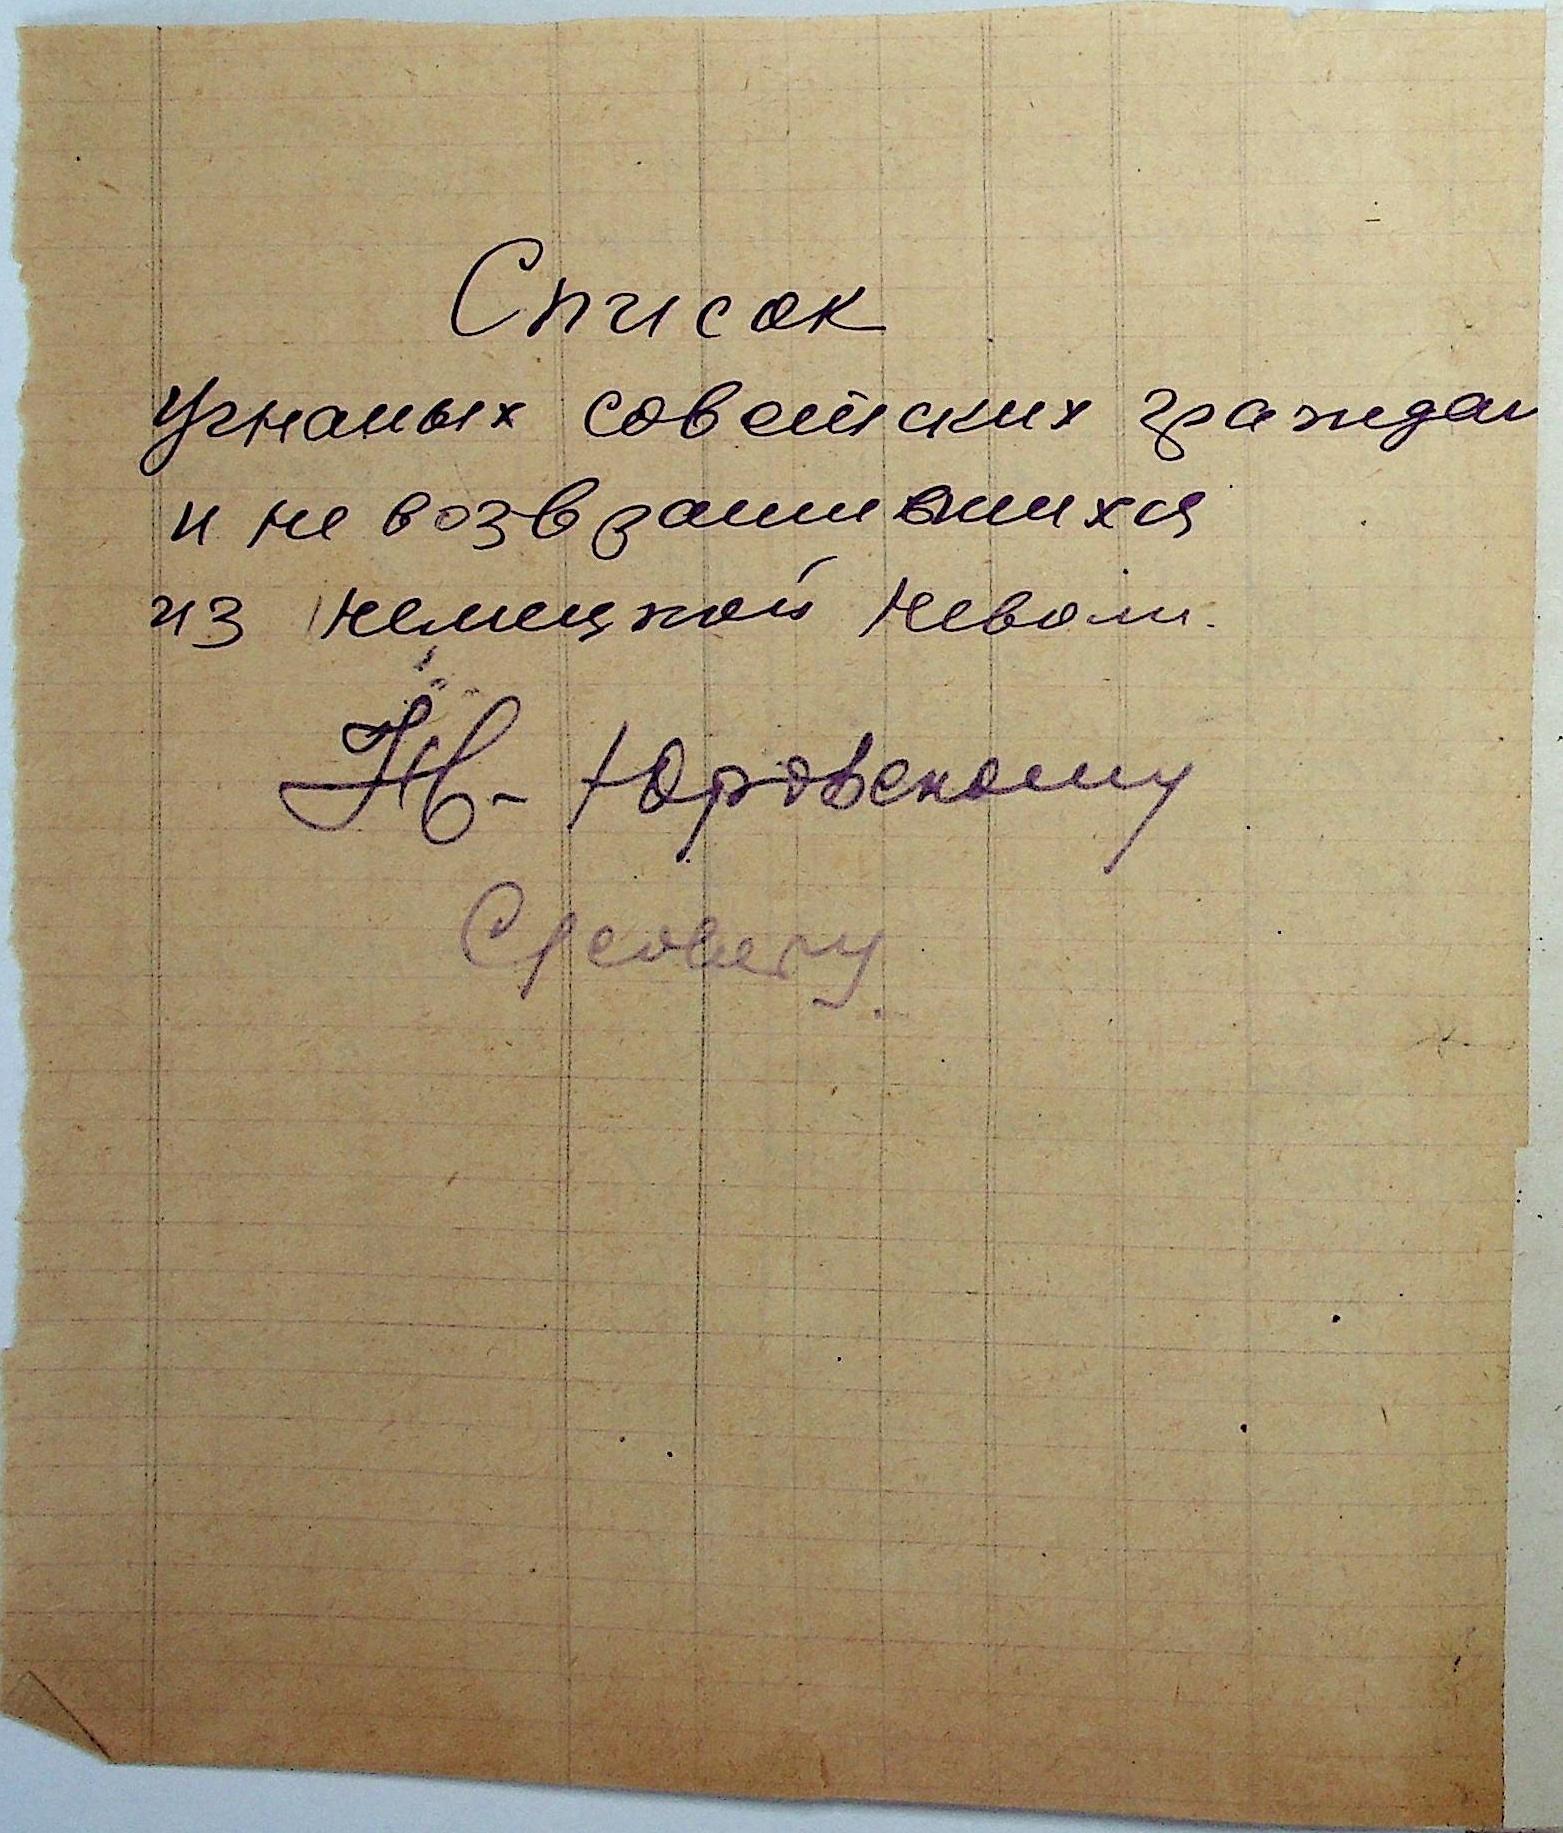 Список
Угнаных советских граждан
и не возвратившихся
из немецкой неволи.
Юровскому
С/совету